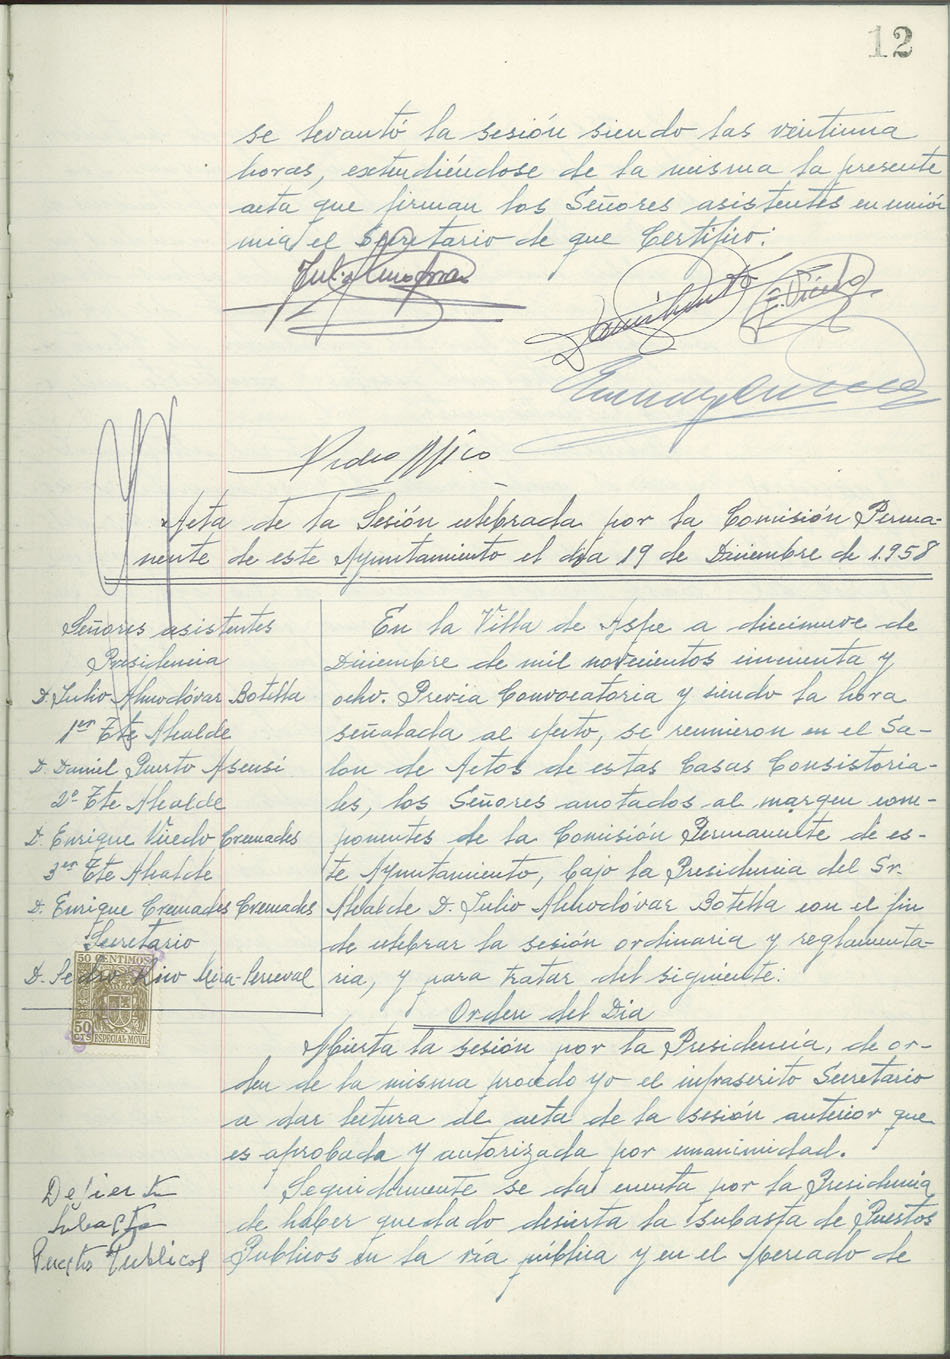 12
se levantó la sesión siendo las veintiuna
horas, extendiéndose de la misma la presente
acta que firman los Señores asistentes en unión
mia, el Secretario de que Certifico:
Pedro Mico
Acta de la Sesión celebrada por la Comisión Perma-
nente de este Ayuntamiento el dia 19 de Diciembre de 1.958
Señores asistentes
Presidencia
D. Julio Almodóvar Botella
1er Tte Alcalde
D. Daniel Puerto Asensi
2º Tte Alcalde
D. Enrique Vicedo Cremades
3er Tte Alcalde
D. Enrique Cremades Cremades
Secretario
D. Pedro Mico Mira-Perceval
50 CENTIMOS
50 CTS
ESPECIAL MOVIL
En la Villa de Aspe a diecinueve de
Diciembre de mil novecientos cincuenta y
ocho. Previa Convocatoria y siendo la hora
señalada al efecto, se reunieron en el Sa-
lon de Actos de estas Casas Consistoria-
les, los Señores anotados al margen com-
ponentes de la Comisión Permanente de es-
te Ayuntamiento, bajo la Presidencia del Sr.
Alcalde D. Julio Almodóvar Botella con el fin
de celebrar la sesión ordinaria y reglamenta-
ria, y para tratar del siguiente:
Orden del Dia
Abierta la sesión por la Presidencia, de or-
den de la misma procedo yo el infrascrito Secretario
a dar lectura al acta de la sesión anterior que
es aprobada y autorizada por unanimidad.
Desierta
Subasta
Puestos Publicos
Seguidamente se da cuenta por la Presidencia
de haber quedado desierta la subasta de Puestos
Publicos en la via pública y en el Mercado de